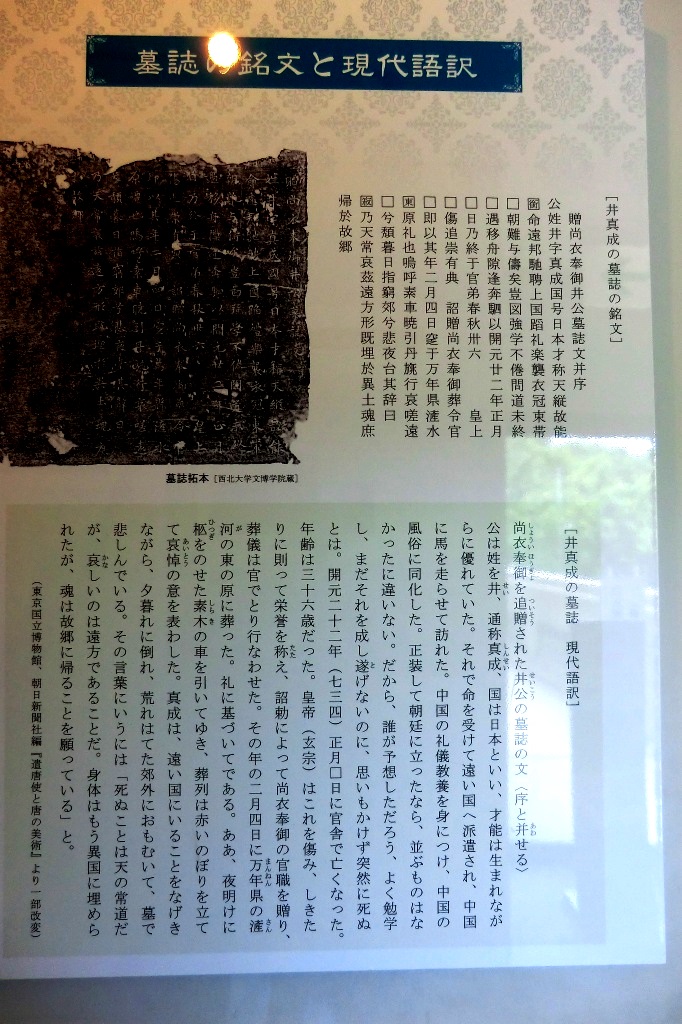 墓誌の銘文と現代語訳
［井真成の墓誌の銘文］
贈尚衣奉御井公墓誌文并序
公姓井字真成国号日本才称天縦故能
銜命遠邦馳聘上国蹈礼楽襲衣冠束帯
□朝難与儔矣豈図強学不倦問道未終
□遇移舟隙逢奔駟以開元廿二年正月
□日乃終于官弟春秋卅六　皇上
□傷追崇有典　詔贈尚衣奉御葬令官
□即以其年二月四日窆于万年県滻水
東原礼也嗚呼素車暁引丹旐行哀嗟遠
□兮頽暮日指窮郊兮悲夜台其辞曰
乃天常哀茲遠方形既埋於異土魂庶
帰於故郷
墓誌拓本［西北大学文博学院蔵］
［井真成の墓誌　現代語訳］
尚衣奉御を追贈された井公の墓誌の文〈序と并せる〉
公は姓を井、通称真成、国は日本といい、才能は生まれなが
らに優れていた。それで命を受けて遠い国へ派遣され、中国
に馬を走らせて訪れた。中国の礼儀教養を身につけ、中国の
風俗に同化した。正装して朝廷に立ったなら、並ぶものはな
かったに違いない。だから、誰が予想しただろう、よく勉学
し、まだそれを成し遂げないのに、思いもかけず突然に死ぬ
とは。開元二十二年（七三四）正月□日に官舎で亡くなった。
年齢は三十六歳だった。皇帝（玄宗）はこれを傷み、しきた
りに則って栄誉を称え、詔勅によって尚衣奉御の官職を贈り、
葬儀は官でとり行なわせた。その年の二月四日に万年県の滻
河の東の原に葬った。礼に基づいてである。ああ、夜明けに
柩をのせた素木の車を引いてゆき、葬列は赤いのぼりを立て
て哀悼の意を表わした。真成は、遠い国にいることをなげき
ながら、夕暮れに倒れ、荒れはてた郊外におもむいて、墓で
悲しんでいる。その言葉にいうには「死ぬことは天の常道だ
が、哀しいのは遠方であることだ。身体はもう異国に埋めら
れたが、魂は故郷に帰ることを願っている」と。
（東京国立博物館、朝日新聞社編『遣唐使と唐の美術』より一部改変）